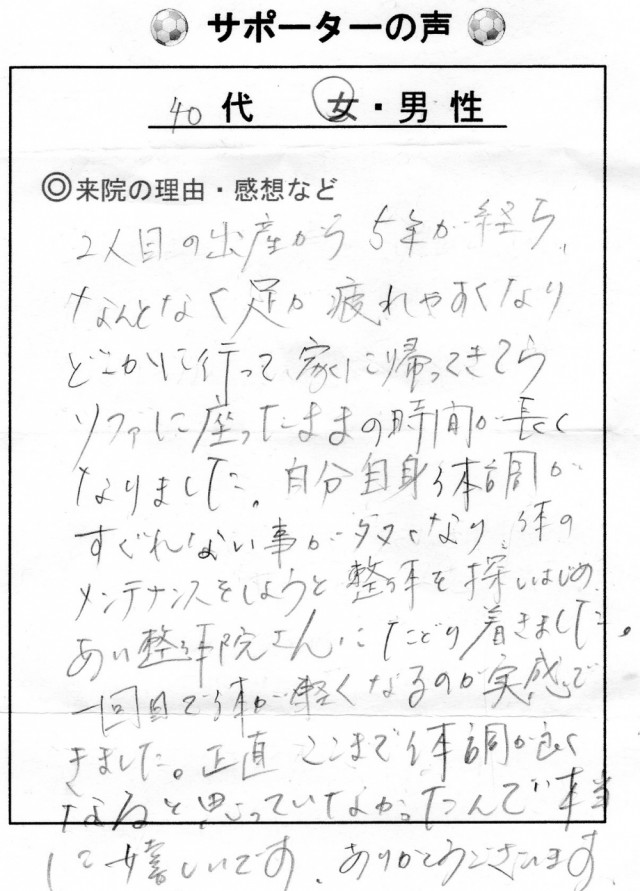 サポーターの声
40代 女・男性
◎来院の理由・感想など
2人目の出産から5年が経ち、
なんとなく足が疲れやすくなり
どこかに行って家に帰ってきてら
ソファに座ったままの時間が長く
なりました。自分自身体調が
すぐれない事が多くなり、体の
メンテナンスをしようと整体を探しはじめ
あい整体院さんにたどり着きました。
一回目で体が軽くなるのが実感で
きました。正直ここまで体調が良く
なると思っていなかったんで本当
に嬉しいです。ありがとうございます